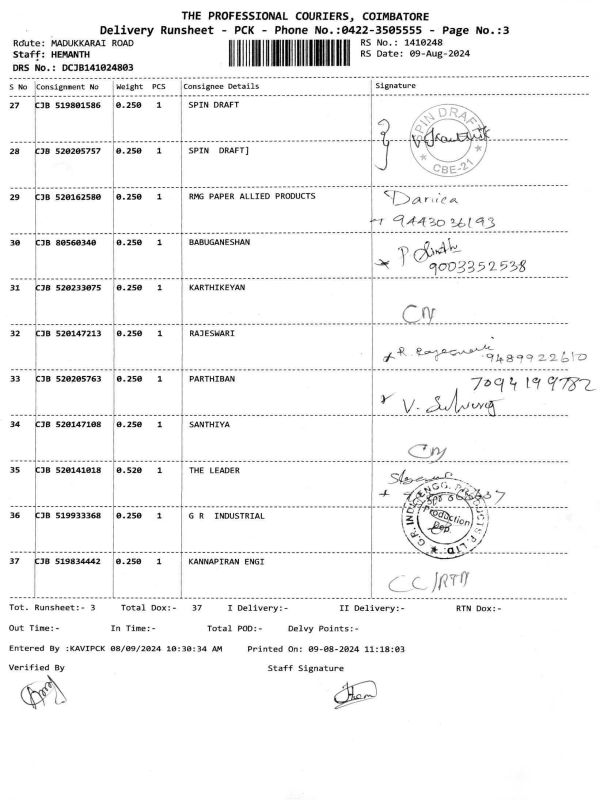 THE PROFESSIONAL COURIERS, COIMBATORE
Delivery Runsheet - PCK - Phone No.:0422-3505555 - Page No.:3
Route: MADUKKARAI ROAD RS No.: 1410248
Staff: HEMANTH RS Date: 09-Aug-2024
DRS No.: DCJB141024803
S No Consignment No Weight PCS Consignee Details Signature
27 CJB 519801586 0.250 1 SPIN DRAFT
SPIN DRAFT
CBE-21
28 CJB 520205757 0.250 1 SPIN DRAFT]
29 CJB 520162580 0.250 1 RMG PAPER ALLIED PRODUCTS Danica
9443036193
30 CJB 80560340 0.250 1 BABUGANESHAN P
9003352538
31 CJB 520233075 0.250 1 KARTHIKEYAN
CN
32 CJB 520147213 0.250 1 RAJESWARI
R. Rajeswari 9489922610
33 CJB 520205763 0.250 1 PARTHIBAN 7094199782
V.
34 CJB 520147108 0.250 1 SANTHIYA
CN
35 CJB 520141018 0.520 1 THE LEADER
36 CJB 519933368 0.250 1 G R INDUSTRIAL
Production
P. LTD.
37 CJB 519834442 0.250 1 KANNAPIRAN ENGI
CC/RTN
Tot. Runsheet:- 3 Total Dox:- 37 I Delivery:- II Delivery:- RTN Dox:-
Out Time:- In Time:- Total POD:- Delvy Points:-
Entered By :KAVIPCK 08/09/2024 10:30:34 AM Printed On: 09-08-2024 11:18:03
Verified By Staff Signature